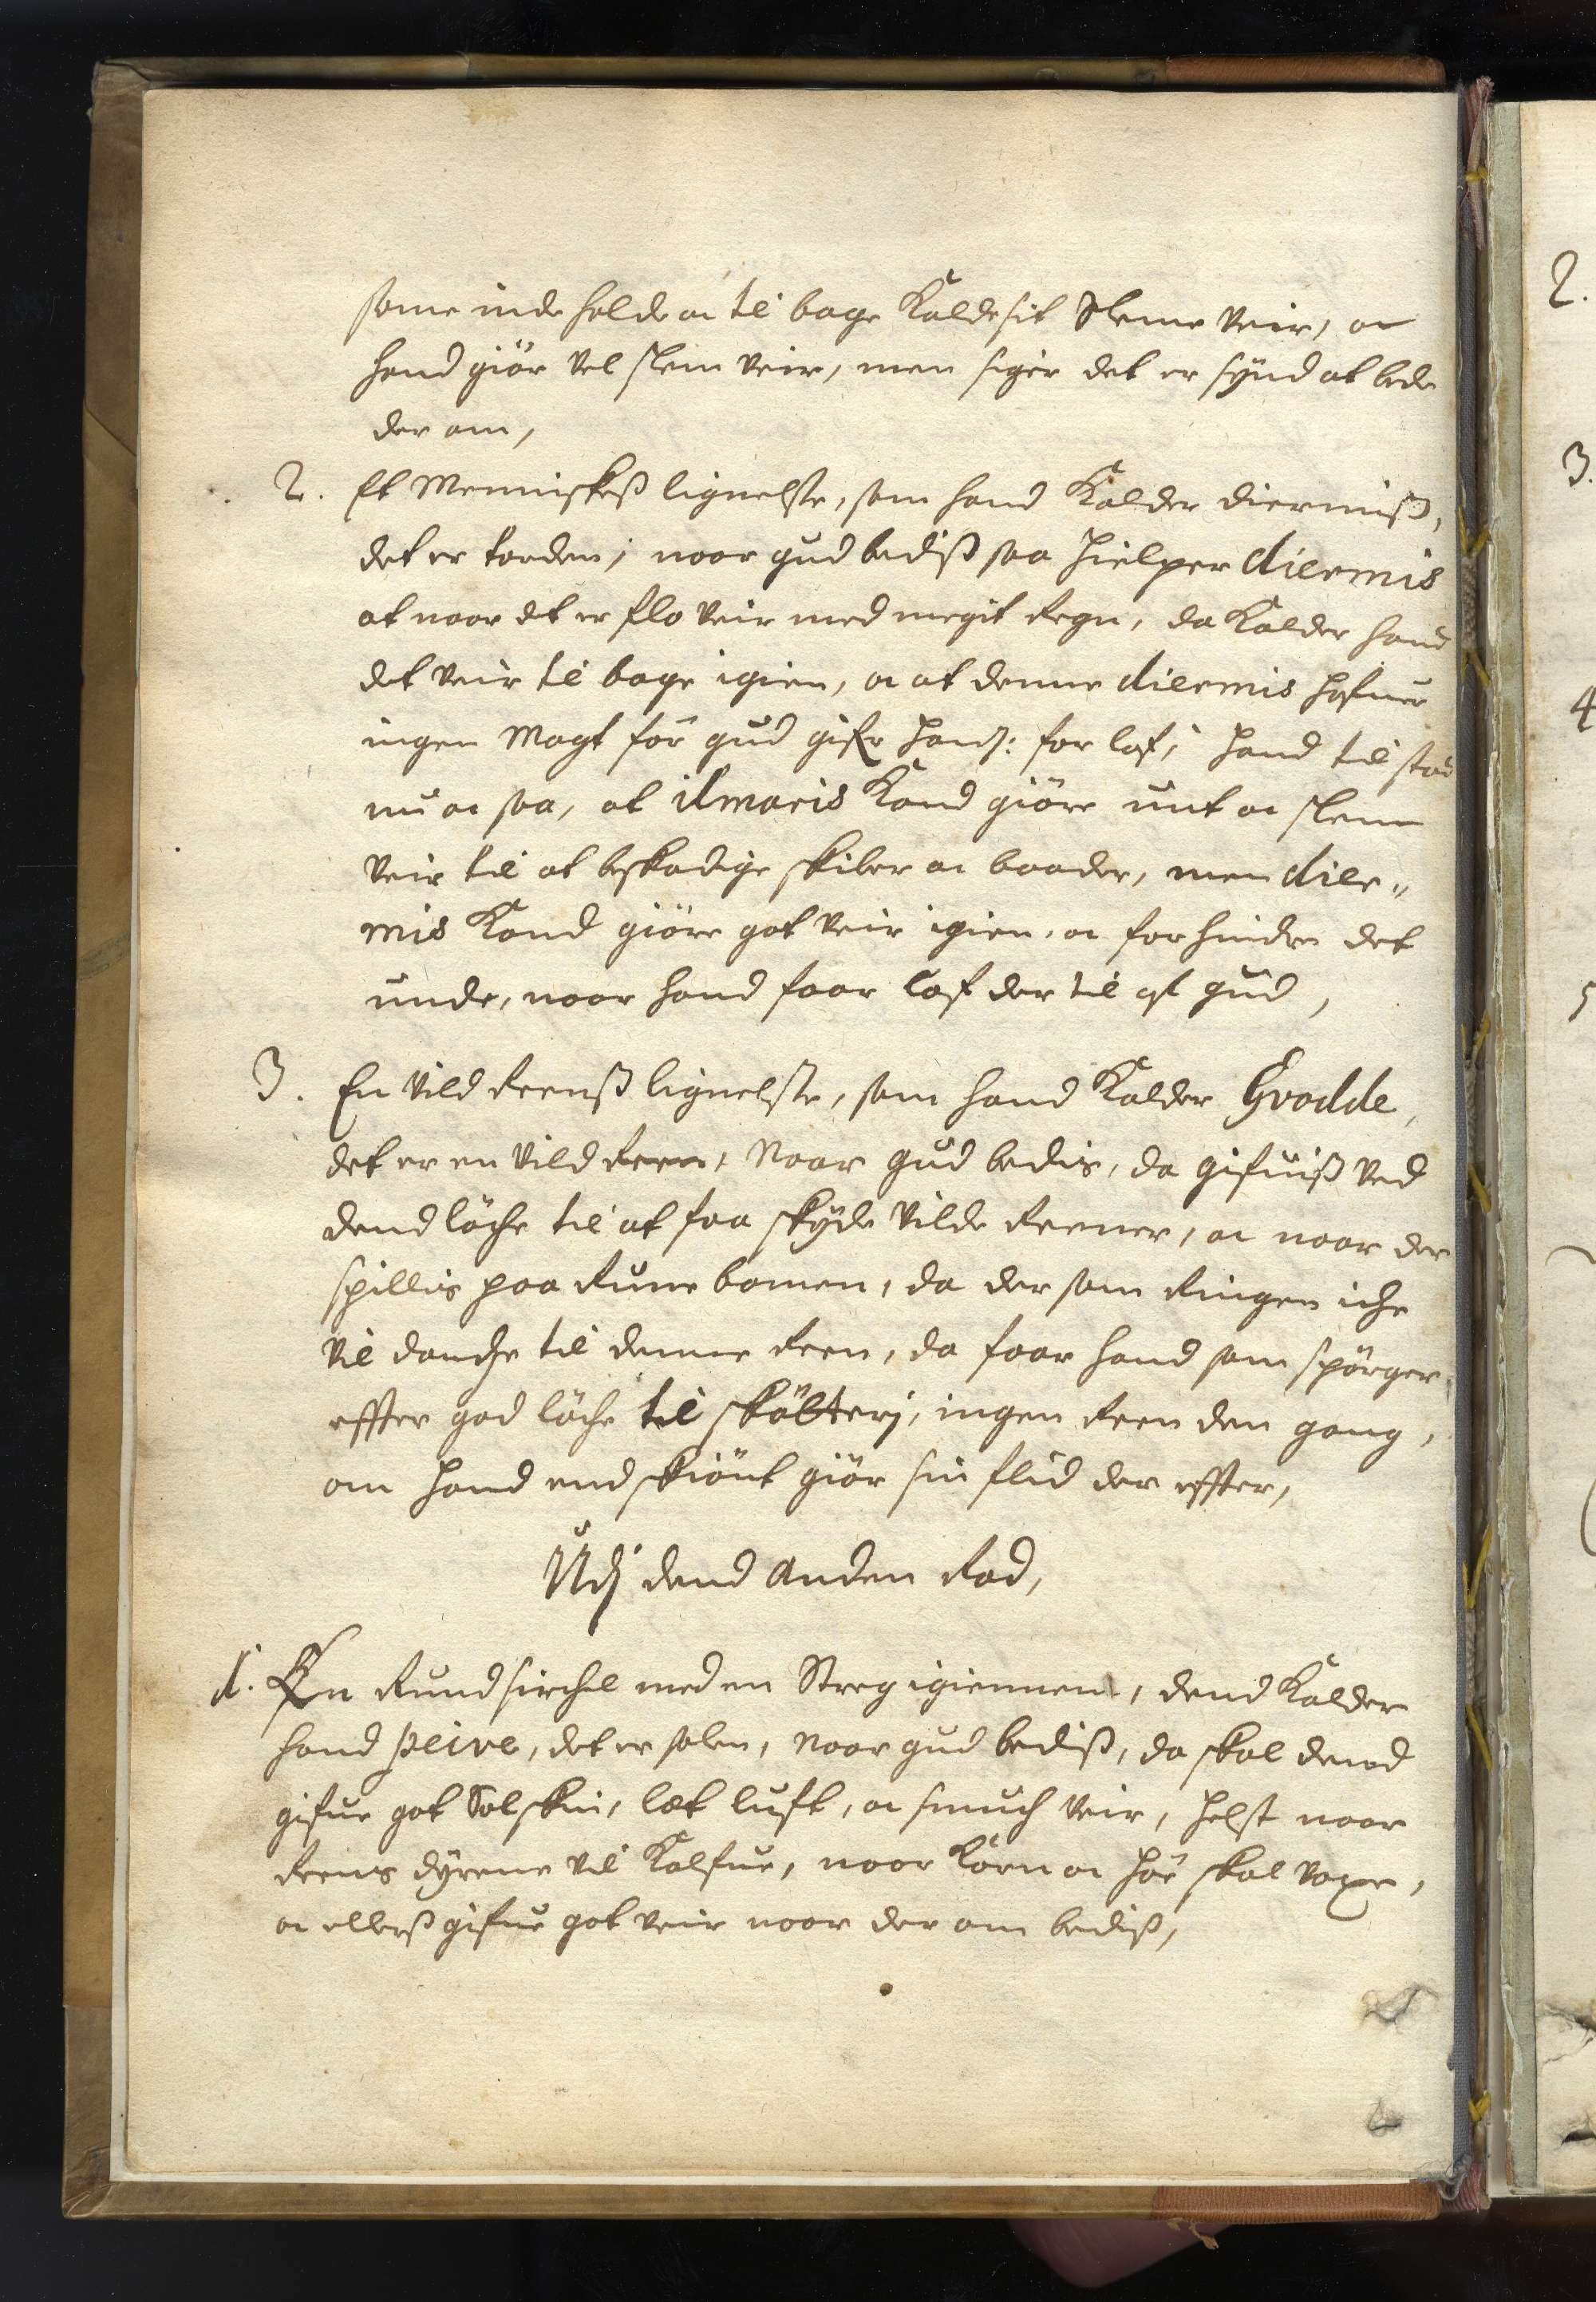 some inde holde oc til bage Kalde sit Slemme Veir, oc
hand giør vel slem veir, men siger det er synd at bede
der om,
2. Et Menniskeß lignelße, som hand Kalder diermiß,
det er torden, naar gud bediß saa hielper diermis
at naar det er flo veir med megit Regn, da Kalder hand
det veir til bage igien, oc at denne diermis hafuer
ingen Magt før gud gifr hans: forlof, hand tilstaar
nu oc saa, at ilmaris Kand giøre unt oc slem
veir til at beskadige skiber oc baader, men dier„
mis Kand giøre got veir igien, oc forhindre det
unde, naar hand faar Lof der til af gud,
3. En vild Reenß lignelße, som hand Kalder Gvodde,
det er en vild Reen, Naar gud bedis, da gifuiß ved
dend løche til at faa skyde vilde Reener, oc naar der
spillis paa Runebomen, da dersom Ringen iche
vil dandse til denne Reen, da faar hand som spørger
effter god løche til skøtterj, ingen Reen den gang,
om hand endskiønt giør sin flid der effter,
Udj dend anden Rad,
1. En Rund sirchel med en Streg igiennem, dend Kalder
hand peive, det er solen, Naar gud bediß, da skal dend
gifue got Solskin, let luft, oc smuch veir, helst naar
Reens dyrene vil Kalfue, naar Korn oc høe skal voxe,
oc ellerß gifue got veir naar der om bediß,
2.
3.
4
5